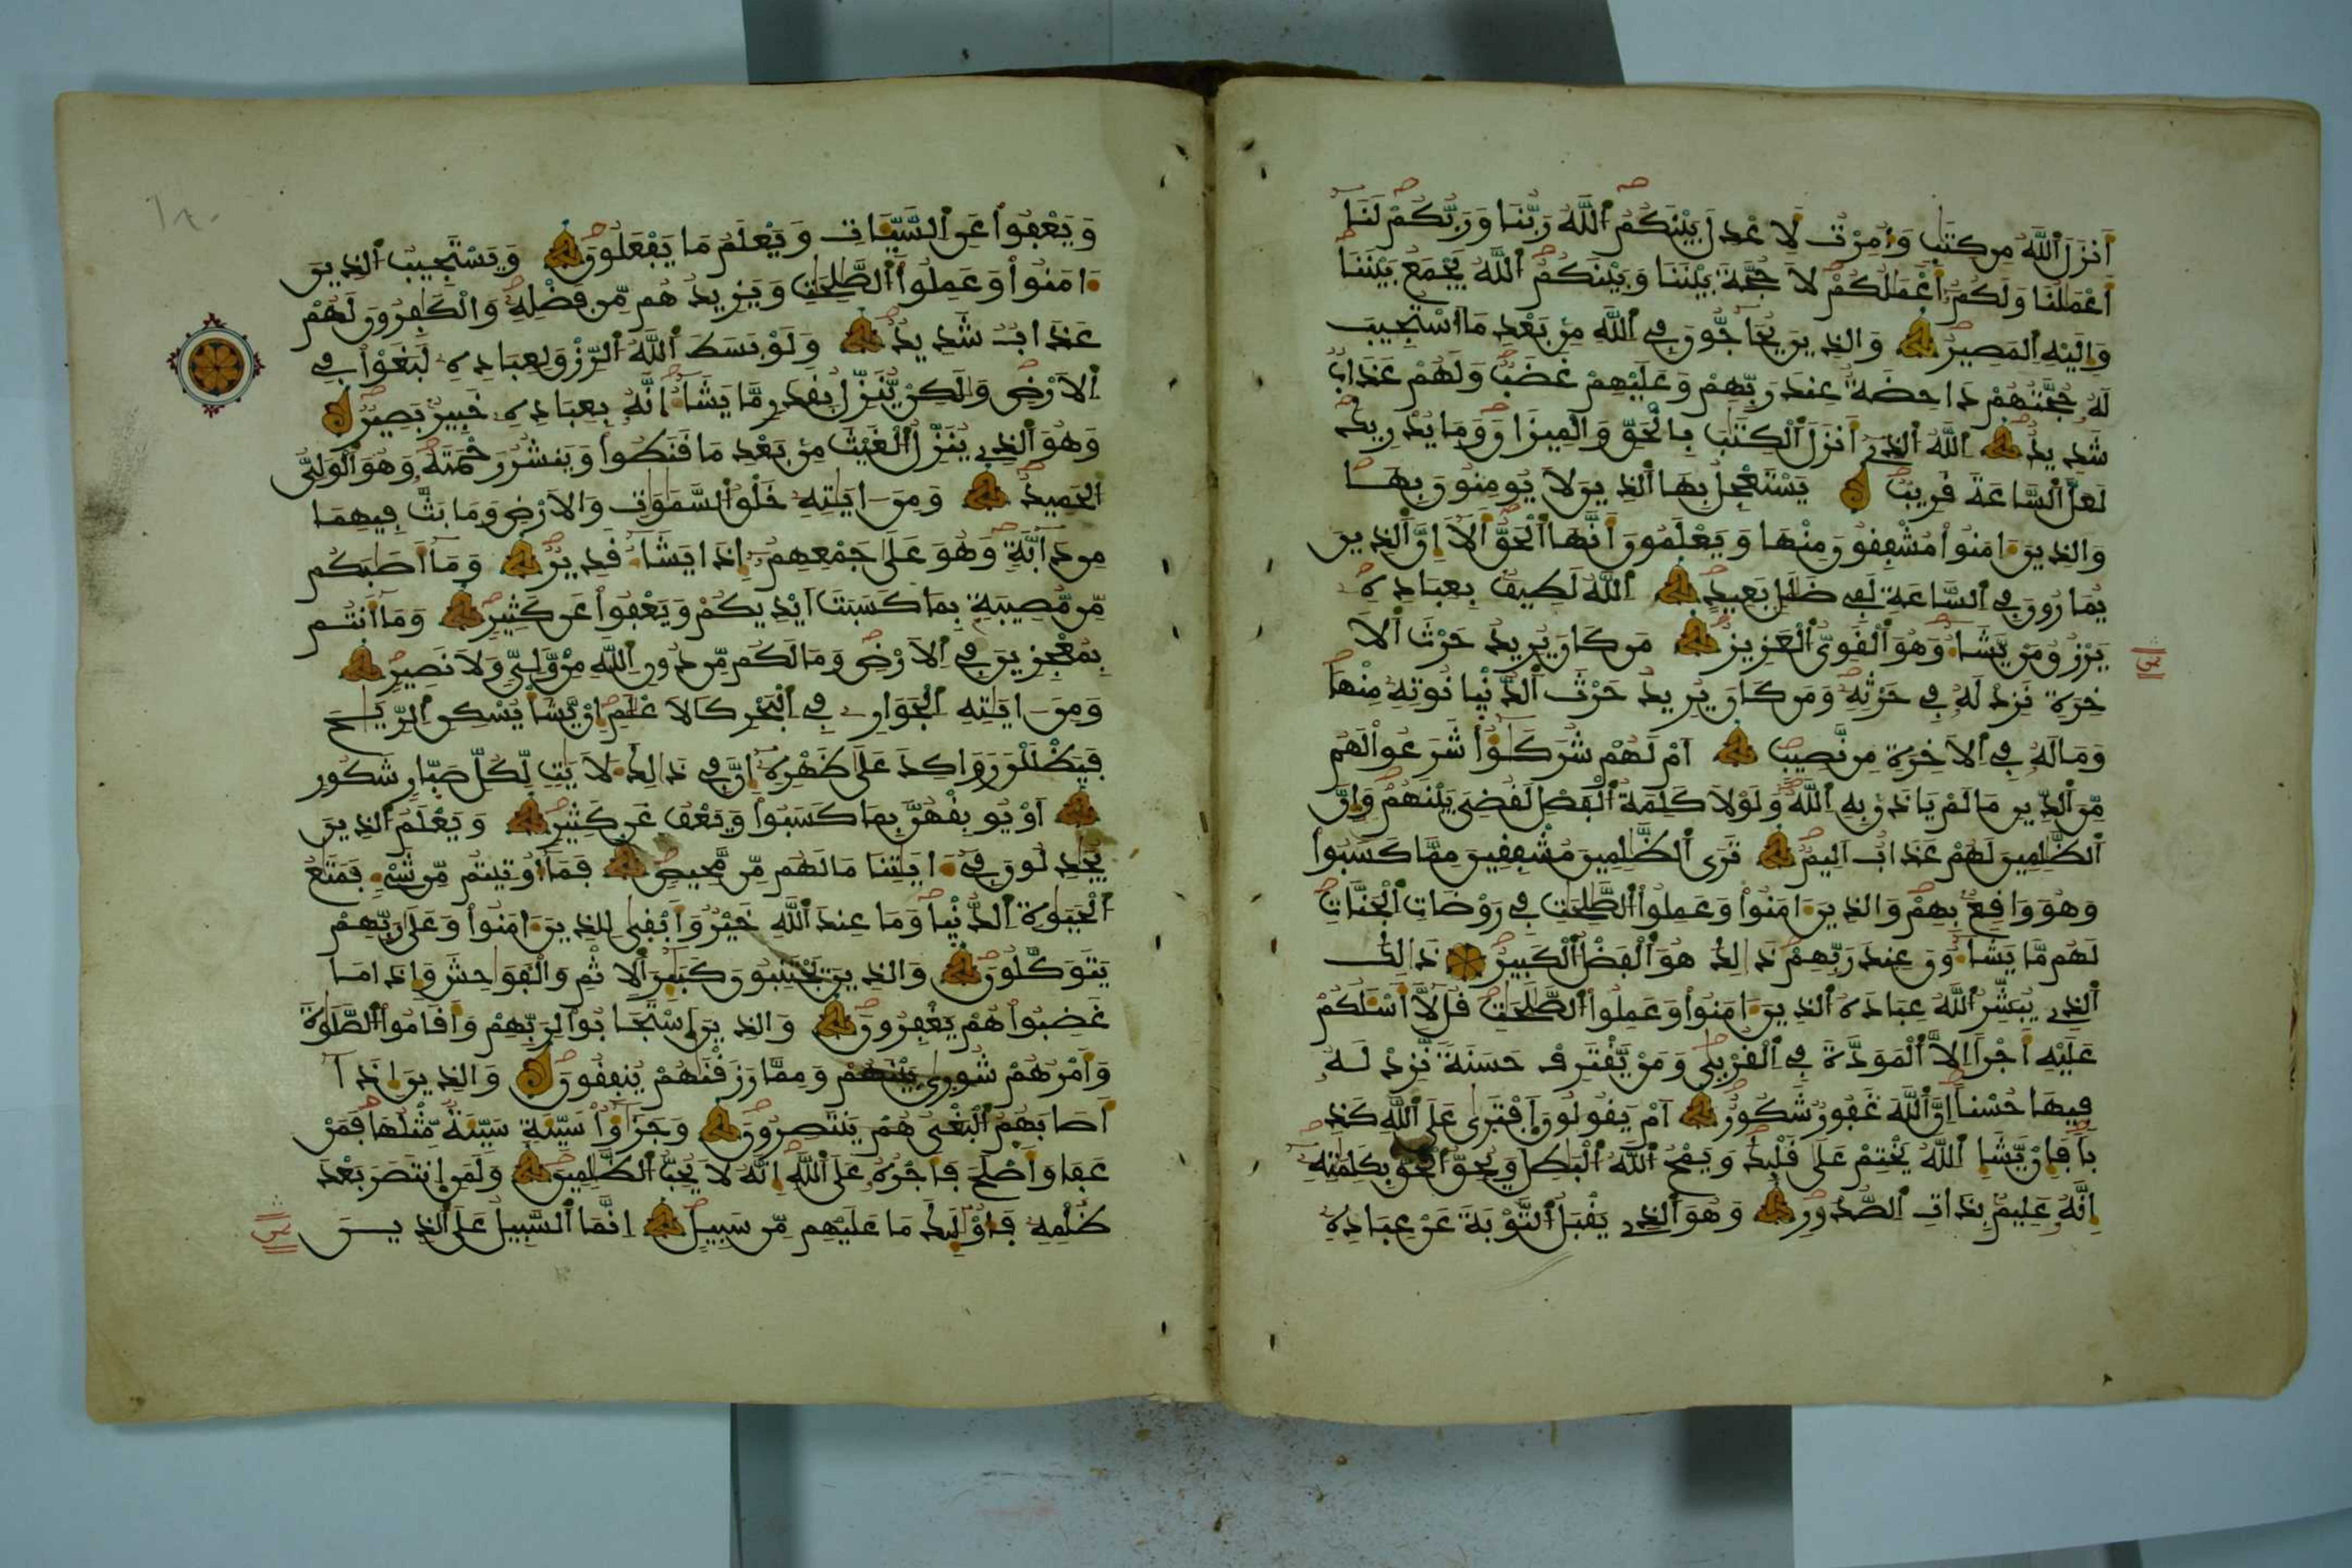 أَنزَلَ ٱللَّهُ مِن كِتَٰبٍ وَأُمِرْتُ لِأَعْدِلَ بَيْنَكُمُ ٱللَّهُ رَبُّنَا وَرَبُّكُمْ لَنَآ
أَعْمَٰلُنَا وَلَكُمُۥٓ أَعْمَٰلُكُمْ لَا حُجَّةَ بَيْنَنَا وَبَيْنَكُمُ ٱللَّهُ يَجْمَعُ بَيْنَنَا
وَإِلَيْهِ ٱلْمَصِيرُ وَالذِينَ يُحَآجُّونَ فِے ٱللَّهِ مِنۢ بَعْدِ مَا ٱسْتُجِيبَ
لَهُۥ حُجَّتُهُمْ دَاحِضَةٌ عِندَ رَبِّهِمْ وَعَلَيْهِمْ غَضَبٌ وَلَهُمْ عَذَابٌ
شَدِيدٌ ٱللَّهُ ٱلذِےٓ أَنزَلَ ٱلْكِتَٰبَ بِالْحَقِّ وَالْمِيزَانَ وَمَا يُدْرِيكَ
لَعَلَّ ٱلسَّاعَةَ قَرِيبٌ يَسْتَعْجِلُ بِهَا ٱلذِينَ لَا يُومِنُونَ بِهَا
وَالذِينَ ءَامَنُوا۟ مُشْفِقُونَ مِنْهَا وَيَعْلَمُونَ أَنَّهَا ٱلْحَقُّ أَلَآ إِنَّ ٱلذِينَ
يُمَارُونَ فِے ٱلسَّاعَةِ لَفِے ضَلَٰلٍۭ بَعِيدٍ ٱللَّهُ لَطِيفٌۢ بِعِبَادِهِۦ
يَرْزُقُ مَنْ يَّشَآءُ وَهُوَ ٱلْقَوِيُّ ٱلْعَزِيزُ مَن كَانَ يُرِيدُ حَرْثَ ٱلَا
خِرَةِ نَزِدْ لَهُۥ فِے حَرْثِهِۦ وَمَن كَانَ يُرِيدُ حَرْثَ ٱلدُّنْيَا نُوتِهِۦ مِنْهَا
وَمَا لَهُۥ فِے ٱلَاخِرَةِ مِن نَّصِيبٍ أَمْ لَهُمْ شُرَكَٰٓؤُا۟ شَرَعُوا۟ لَهُم
مِّنَ ٱلدِّينِ مَا لَمْ يَاذَنۢ بِهِ ٱللَّهُ وَلَوْلَا كَلِمَةُ ٱلْفَصْلِ لَقُضِيَ بَيْنَهُمْ وَإِنَّ
ٱلظَّٰلِمِينَ لَهُمْ عَذَابٌ اَلِيمٌ تَرَى ٱلظَّٰلِمِينَ مُشْفِقِينَ مِمَّا كَسَبُوا۟
وَهُوَ وَاقِعٌۢ بِهِمْ وَالذِينَ ءَامَنُوا۟ وَعَمِلُوا۟ ٱلصَّٰلِحَٰتِ فِے رَوْضَاتِ ٱلْجَنَّاتِ
لَهُم مَّا يَشَآءُونَ عِندَ رَبِّهِمْ ذَٰلِكَ هُوَ ٱلْفَضْلُ ٱلْكَبِيرُ ذَٰلِكَ
ٱلذِے يُبَشِّرُ ٱللَّهُ عِبَادَهُ ٱلذِينَ ءَامَنُوا۟ وَعَمِلُوا۟ ٱلصَّٰلِحَٰتِ قُل لَّآ أَسْـَٔلُكُمْ
عَلَيْهِ أَجْرًا اِلَّا ٱلْمَوَدَّةَ فِے ٱلْقُرْبَىٰ وَمَنْ يَّقْتَرِفْ حَسَنَةً نَّزِدْ لَهُۥ
فِيهَا حُسْنًا اِنَّ ٱللَّهَ غَفُورٌ شَكُورٌ أَمْ يَقُولُونَ ٱفْتَرَىٰ عَلَى ٱللَّهِ كَذِ
بًا فَإِنْ يَّشَإِ ٱللَّهُ يَخْتِمْ عَلَىٰ قَلْبِكَ وَيَمْحُ ٱللَّهُ ٱلْبَٰطِلَ وَيُحِقُّ ٱلْحَقَّ بِكَلِمَٰتِهِۦٓ
إِنَّهُۥ عَلِيمٌۢ بِذَاتِ ٱلصُّدُورِ وَهُوَ ٱلذِے يَقْبَلُ ٱلتَّوْبَةَ عَنْ عِبَادِهِۦ
وَيَعْفُوا۟ عَنِ ٱلسَّيِّـَٔاتِ وَيَعْلَمُ مَا يَفْعَلُونَ وَيَسْتَجِيبُ ٱلذِينَ
ءَامَنُوا۟ وَعَمِلُوا۟ ٱلصَّٰلِحَٰتِ وَيَزِيدُهُم مِّن فَضْلِهِۦ وَالْكَٰفِرُونَ لَهُمْ
عَذَابٌ شَدِيدٌ وَلَوْ بَسَطَ ٱللَّهُ ٱلرِّزْقَ لِعِبَادِهِۦ لَبَغَوْا۟ فِے
ٱلَارْضِ وَلَٰكِنْ يُّنَزِّلُ بِقَدَرٍ مَّا يَشَآءُ انَّهُۥ بِعِبَادِهِۦ خَبِيرٌۢ بَصِيرٌ
وَهُوَ ٱلذِے يُنَزِّلُ ٱلْغَيْثَ مِنۢ بَعْدِ مَا قَنَطُوا۟ وَيَنشُرُ رَحْمَتَهُۥ وَهُوَ ٱلْوَلِيُّ
ٱلْحَمِيدُ وَمِنَ ايَٰتِهِۦ خَلْقُ ٱلسَّمَٰوَٰتِ وَالَارْضِ وَمَا بَثَّ فِيهِمَا
مِن دَآبَّةٍ وَهُوَ عَلَىٰ جَمْعِهِمُۥٓ إِذَا يَشَآءُ قَدِيرٌ وَمَآ أَصَٰبَكُم
مِّن مُّصِيبَةٍۭ بِمَا كَسَبَتَ اَيْدِيكُمْ وَيَعْفُوا۟ عَن كَثِيرٍ وَمَآ أَنتُم
بِمُعْجِزِينَ فِے ٱلَارْضِ وَمَا لَكُم مِّن دُونِ ٱللَّهِ مِنْ وَّلِيٍّ وَلَا نَصِيرٍ
وَمِنَ ايَٰتِهِ ٱلْجَوَارِۦ فِے ٱلْبَحْرِ كَالَاعْلَٰمِ إِنْ يَّشَأْ يُسْكِنِ ٱلرِّيَٰحَ
فَيَظْلَلْنَ رَوَاكِدَ عَلَىٰ ظَهْرِهِۦٓ إِنَّ فِے ذَٰلِكَ لَأٓيَٰتٍ لِّكُلِّ صَبَّارٍ شَكُورٍ
أَوْ يُوبِقْهُنَّ بِمَا كَسَبُوا۟ وَيَعْفُ عَن كَثِيرٍ وَيَعْلَمُ ٱلذِينَ
يُجَٰدِلُونَ فِےٓ ءَايَٰتِنَا مَا لَهُم مِّن مَّحِيصٍ فَمَآ أُوتِيتُم مِّن شَےْءٍ فَمَتَٰعُ
ٱلْحَيَوٰةِ ٱلدُّنْيَا وَمَا عِندَ ٱللَّهِ خَيْرٌ وَأَبْقَىٰ لِلذِينَ ءَامَنُوا۟ وَعَلَىٰ رَبِّهِمْ
يَتَوَكَّلُونَ وَالذِينَ يَجْتَنِبُونَ كَبَٰٓئِرَ ٱلِاثْمِ وَالْفَوَٰحِشَ وَإِذَا مَا
غَضِبُوا۟ هُمْ يَغْفِرُونَ وَالذِينَ ٱسْتَجَابُوا۟ لِرَبِّهِمْ وَأَقَامُوا۟ ٱلصَّلَوٰةَ
وَأَمْرُهُمْ شُورَىٰ بَيْنَهُمْ وَمِمَّا رَزَقْنَٰهُمْ يُنفِقُونَ وَالذِينَ إِذَآ
أَصَابَهُمُ ٱلْبَغْيُ هُمْ يَنتَصِرُونَ وَجَزَٰٓؤُا۟ سَيِّئَةٍ سَيِّئَةٌ مِّثْلُهَا فَمَنْ
عَفَا وَأَصْلَحَ فَأَجْرُهُۥ عَلَى ٱللَّهِ إِنَّهُۥ لَا يُحِبُّ ٱلظَّٰلِمِينَ وَلَمَنِ ٱنتَصَرَ بَعْدَ
ظُلْمِهِۦ فَأُو۟لَٰٓئِكَ مَا عَلَيْهِم مِّن سَبِيلٍ إِنَّمَا ٱلسَّبِيلُ عَلَى ٱلذِينَ